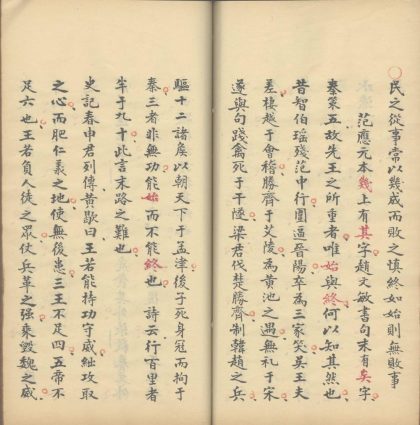 民之從事常以幾成而敗之慎終如始則無敗事
范應元本幾上有其字趙文敏書句末有矣字
秦策五故先王之所重者唯始與終何以知其然也
昔智伯瑶殘范中行圍逼晉陽卒為三家笑吳王夫
差棲越于會稽勝齊于艾陵為黃池之遇無礼于宋
遂與句踐禽死于干隧梁君伐楚勝齊制韓趙之兵
驅十二諸侯以朝天下于孟津後子死身冠而拘于
秦三者非無功能始而不能終也 詩云行百里者
半于九十此言末路之難也
史記春申君列傳黃歇曰王若能持功守威絀攻取
之心而肥仁義之地使無後患三王不足四五帝不
足六也王若負人徒之眾仗兵革之強乘毀魏之威